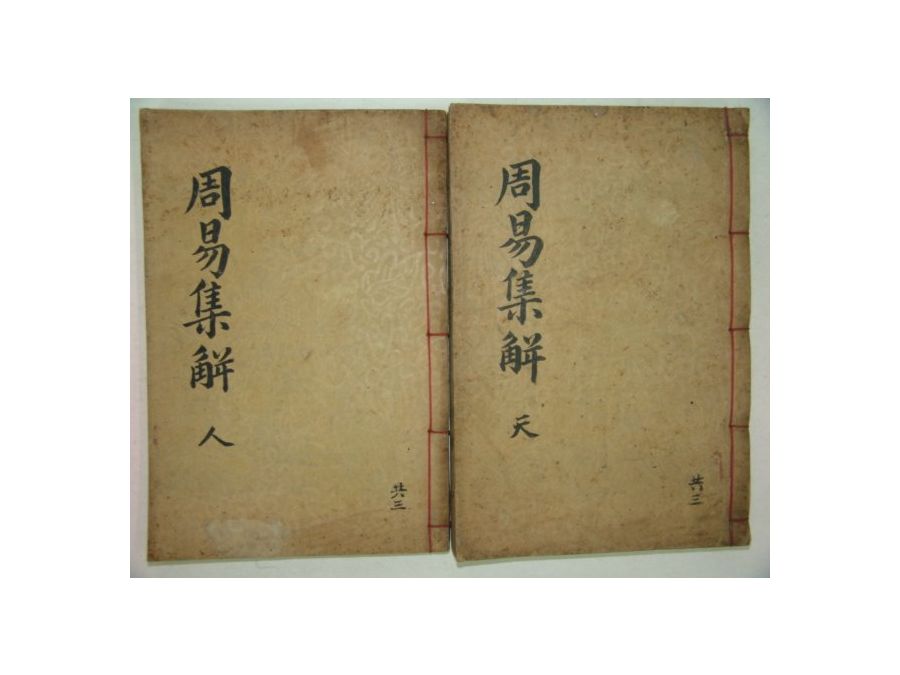 周易集解 天
共三
周易集解 人
共三